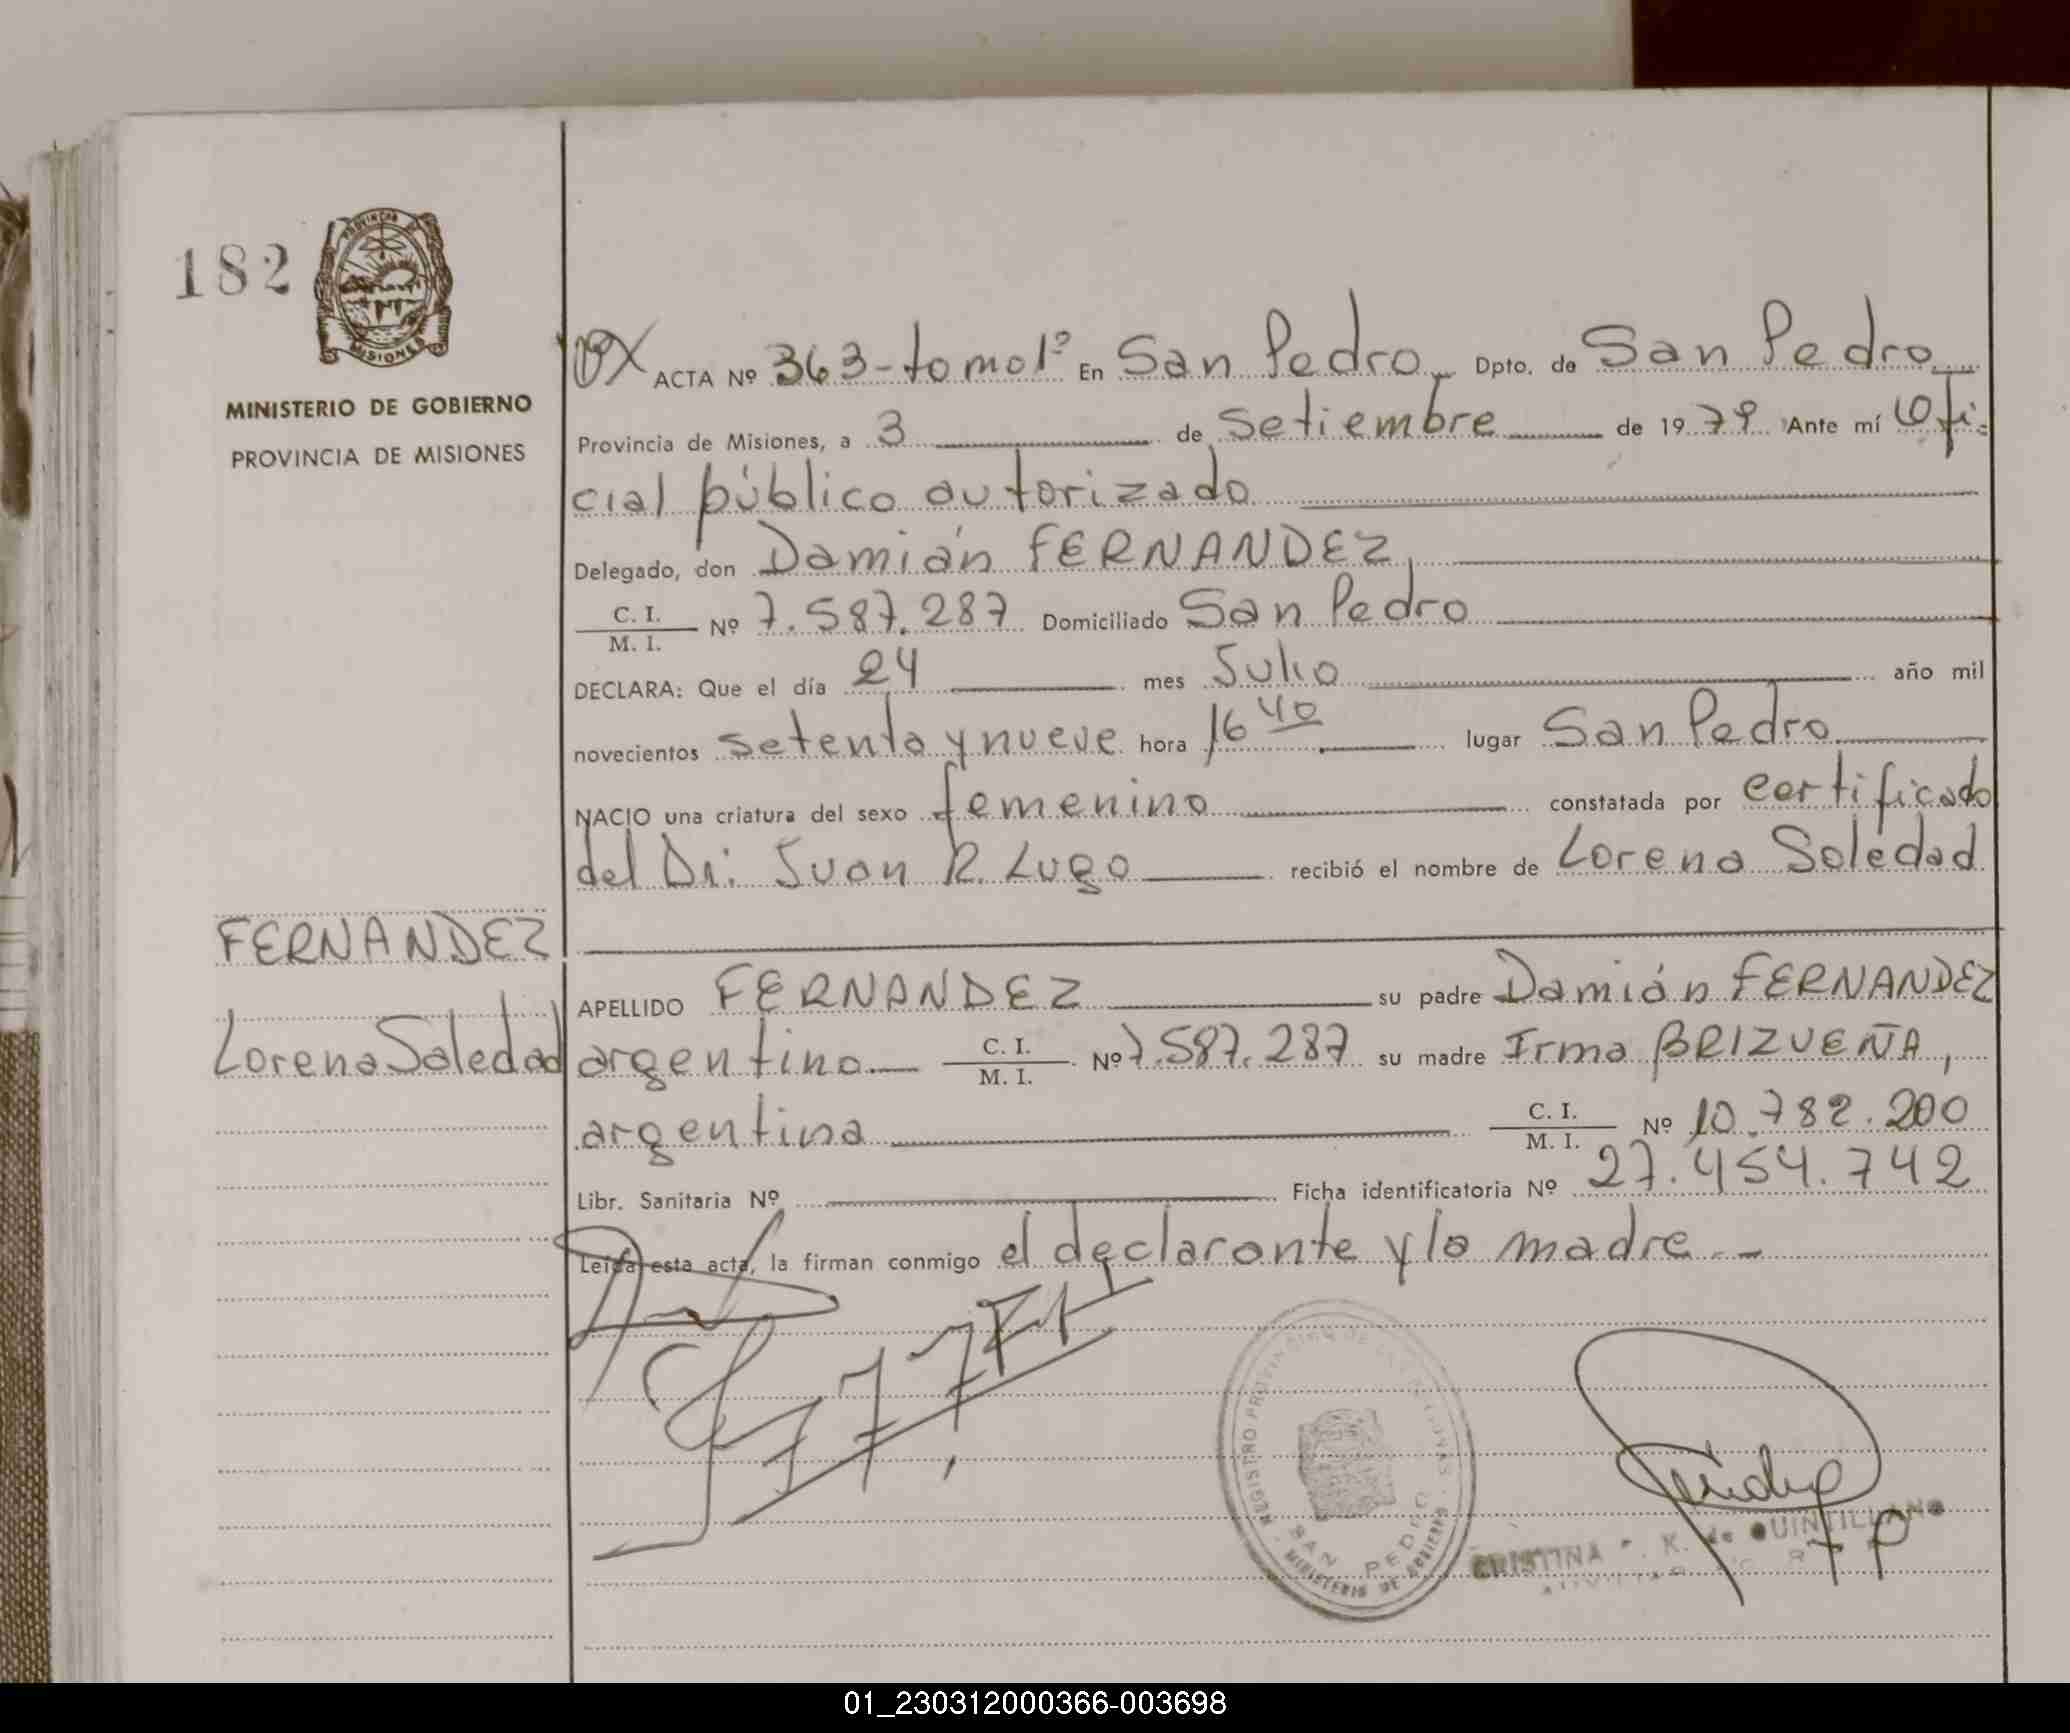 182
PROVINCIA DE
MISIONES
MINISTERIO DE GOBIERNO
PROVINCIA DE MISIONES
ACTA Nº 363-tomo1º En San Pedro Dpto. de San Pedro
Provincia de Misiones, a 3 de Setiembre de 1979 Ante mí Ofi-
cial público autorizado
Delegado, don Damián FERNANDEZ,
C. I.
M. I. Nº 7.587.287 Domiciliado San Pedro
DECLARA: Que el día 24 mes Julio año mil
novecientos setenta y nueve hora 16 40 lugar San Pedro
NACIO una criatura del sexo femenino constatada por certificado
del Dr. Juan R. Lugo recibió el nombre de Lorena Soledad
FERNANDEZ
Lorena Soledad
APELLIDO FERNANDEZ su padre Damián FERNANDEZ
argentino C. I.
M. I. Nº 7.587.287 su madre Irma BRIZUEÑA,
argentina C. I.
M. I. Nº 10.782.200
Libr. Sanitaria Nº Ficha identificatoria Nº 27.454.742
Leída esta acta, la firman conmigo el declarante y la madre.-
REGISTRO PROVINCIAL DE LAS PERSONAS
SAN PEDRO
MINISTERIO DE GOBIERNO
CRISTINA K. de QUINTILLANO
01_230312000366-003698